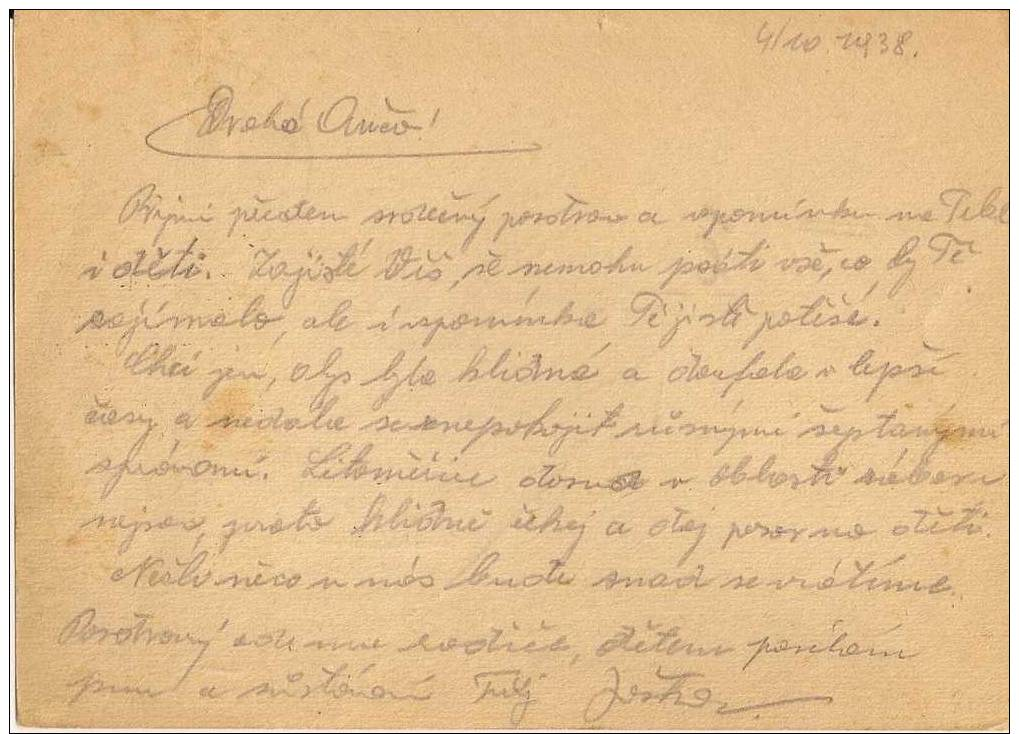 4/10. 1938.
Drahá Aničo!
Přijmi předem srdečný pozdrav a vzpomínku na Tebe
i děti. Zajisté Víš, že nemohu psáti vše, co by Tě
zajímalo, ale i vzpomínka Tě jistě potěší.
Chci jen, abys byla klidná a doufala v lepší
časy a nedala se znepokojit různými šeptanými
zprávami. Litoměřice dosud v oblasti záboru
nejsou, proto klidně čekej a dej pozor na děti.
Nežli něco u nás bude snad se vrátíme.
Pozdravuj ode mne rodiče, dětem posílám
a zůstávám Tvůj Joška